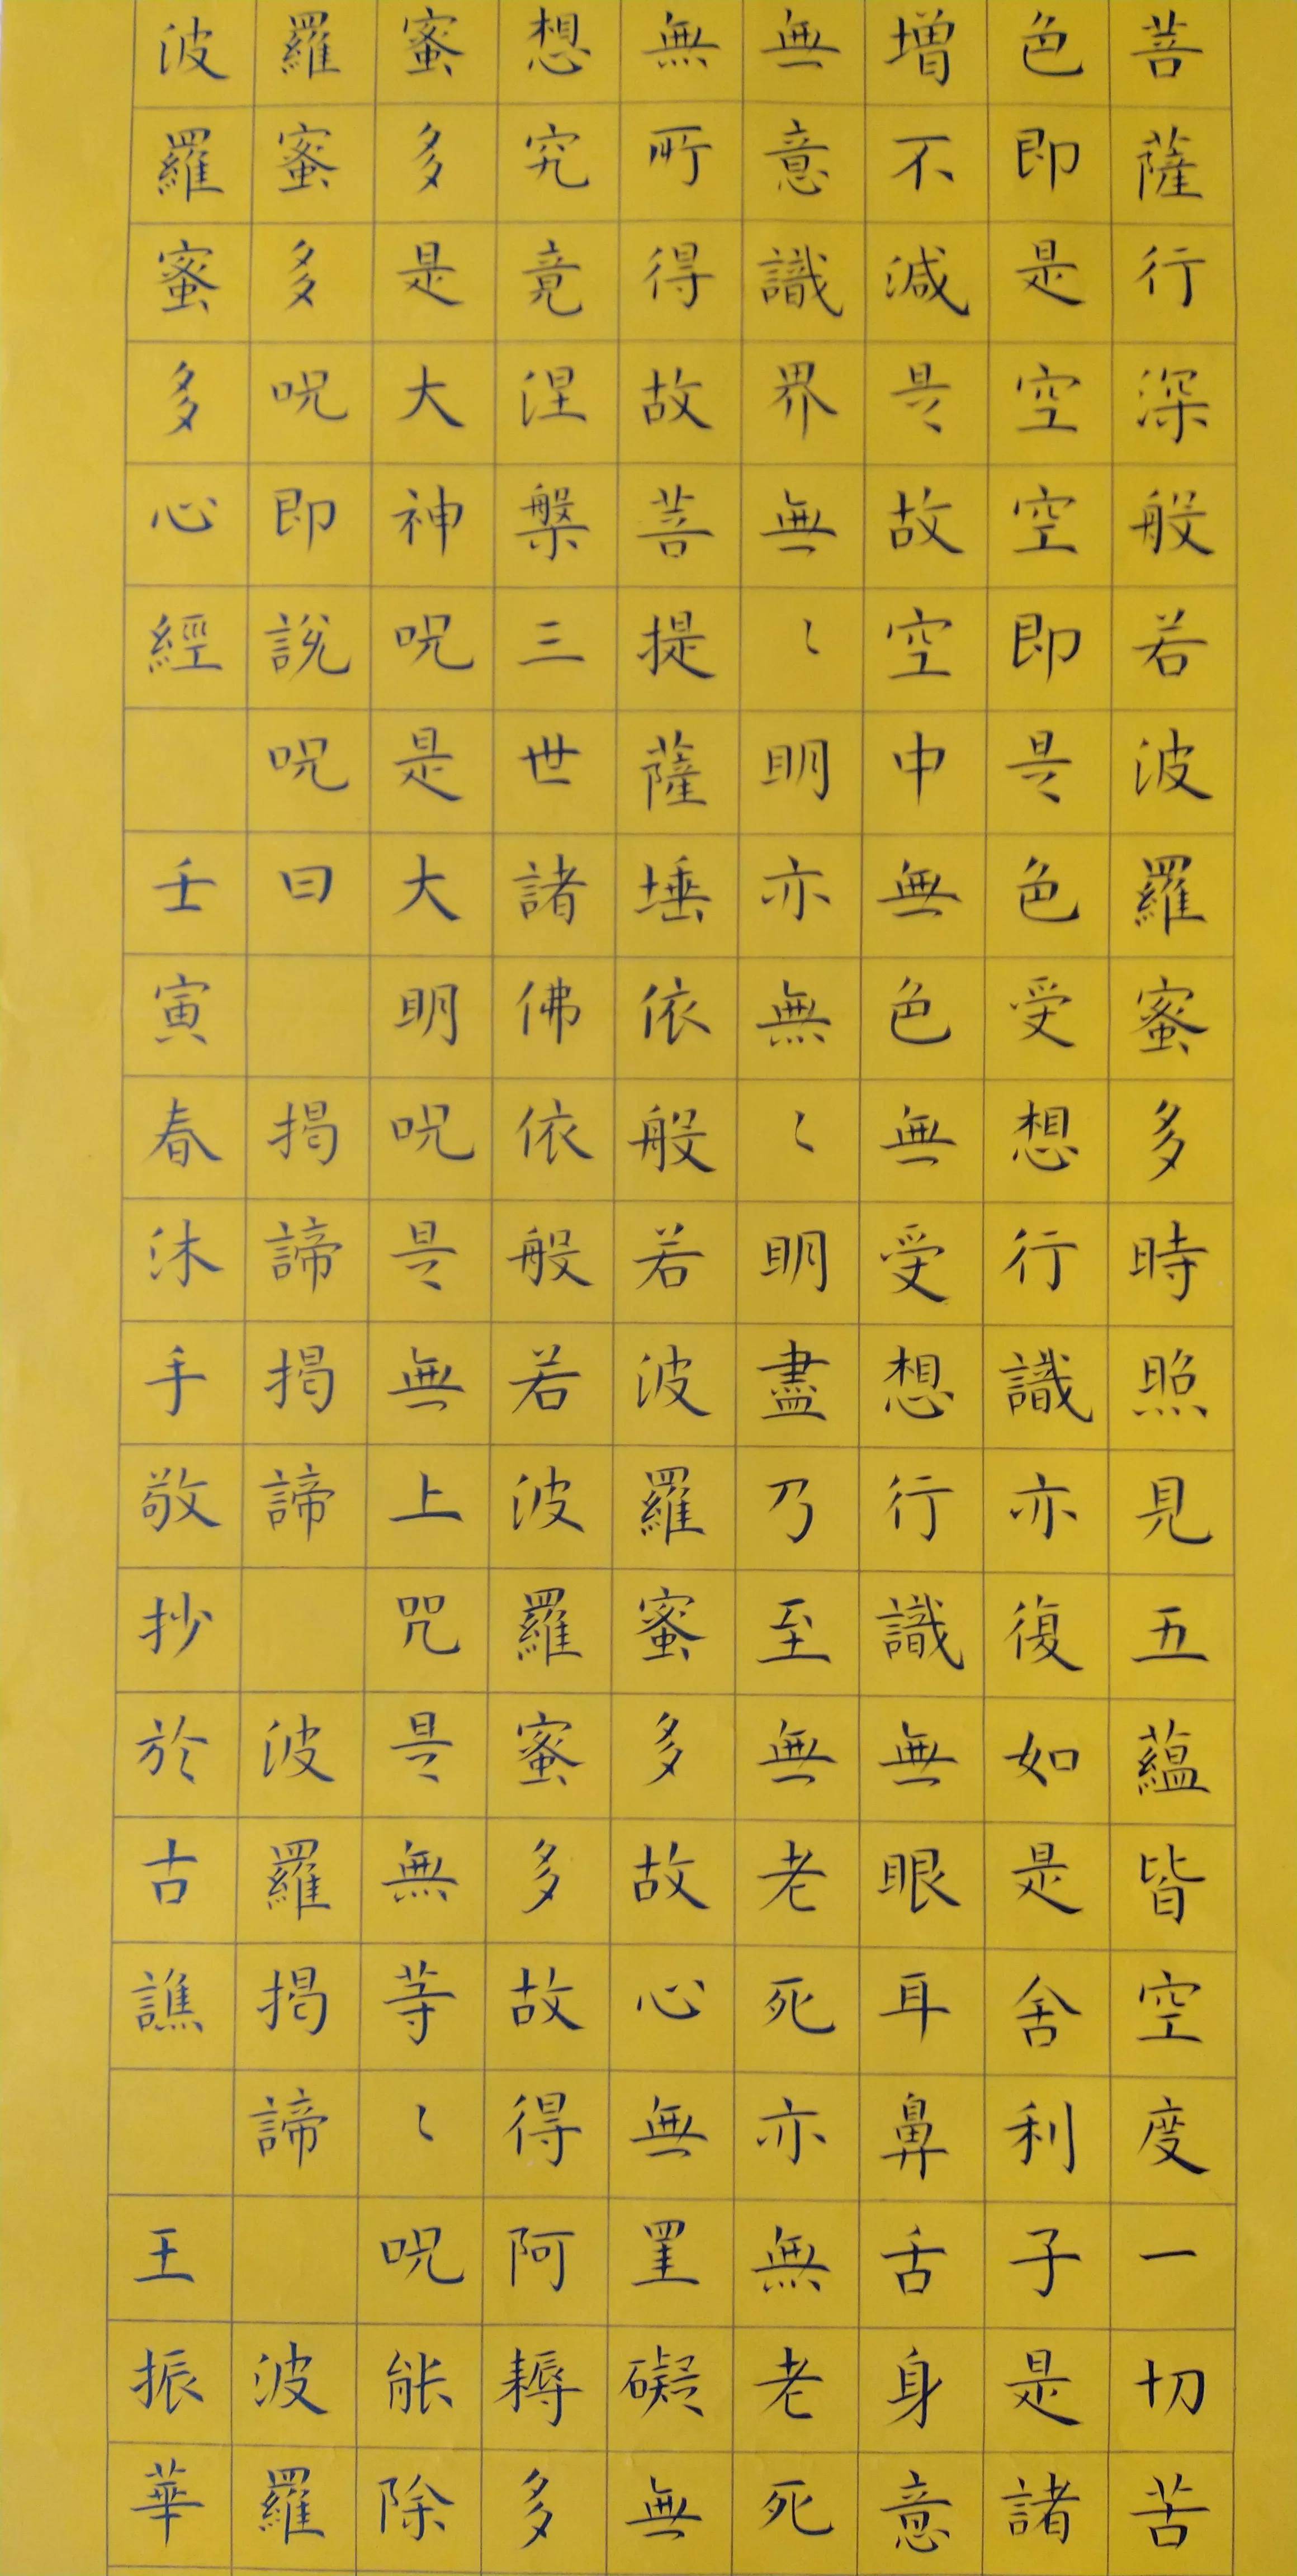 菩薩行深般若波羅蜜多時照見五蘊皆空度一切苦
色即是空空即是色受想行識亦復如是舍利子是諸
增不減是故空中無色無受想行識無眼耳鼻舌身意
無意識界無〻明亦無〻明盡乃至無老死亦無老死
無所得故菩提薩埵依般若波羅蜜多故心無罣礙無
想究竟涅槃三世諸佛依般若波羅蜜多故得阿耨多
蜜多是大神呪是大明呪是無上咒是無等〻呪能除
羅蜜多呪即說呪曰 揭諦揭諦 波羅揭諦 波羅
波羅蜜多心經 壬寅春沐手敬抄於古譙 王振華